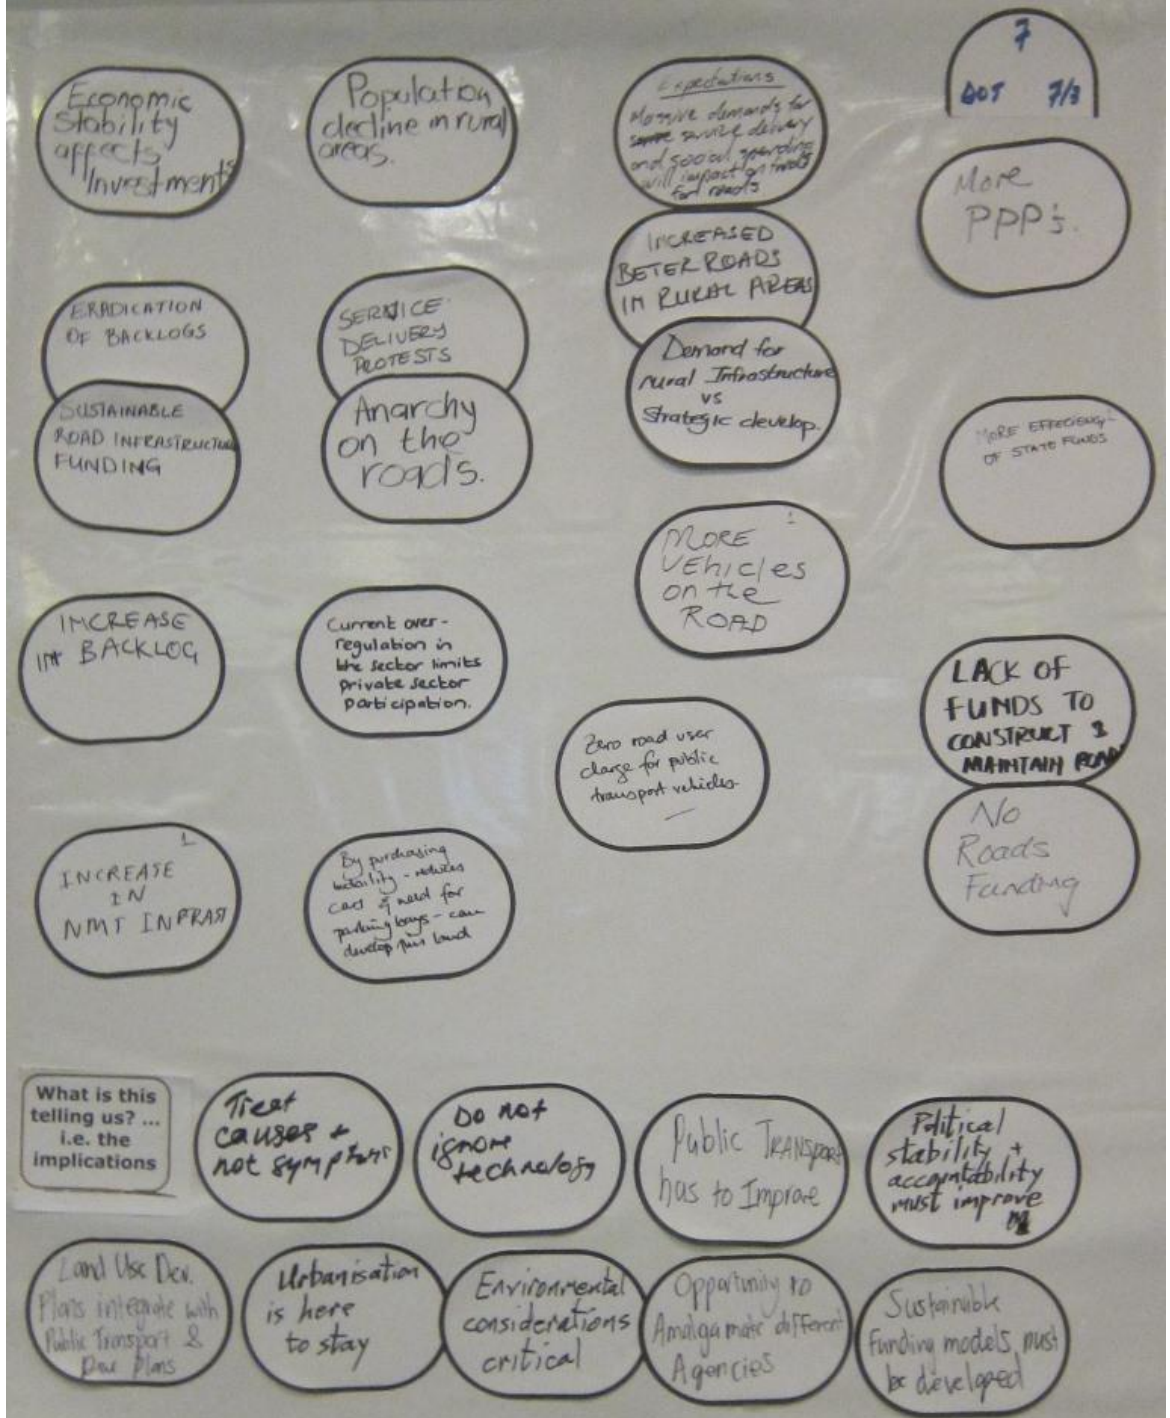 Economic
Stability
affects
Investments
Population
decline in rural
areas.
Expectations
Massive demands for
service delivery
and social spending
will impact on funds
for roads
7
DOT 7/3
More
PPP's.
INCREASED
BETER ROADS
IN RURAL AREAS
ERADICATION
OF BACKLOGS
SERVICE
DELIVERY
PROTESTS
Demand for
rural Infrastructure
vs
Strategic develop.
SUSTAINABLE
ROAD INFRASTRUCTURE
FUNDING
Anarchy
on the
roads.
MORE
OF STATE FUNDS
1
MORE
VEHICLES
on the
ROAD
INCREASE
IN BACKLOG
Current over-
regulation in
the sector limits
private sector
participation.
LACK OF
FUNDS TO
CONSTRUCT &
MAINTAIN ROADS
Zero road user
charge for public
transport vehicles
No
Roads
Funding
1
INCREASE
IN
NMT INFRAST
By purchasing
mobility - reduces
cars & need for
parking bays - can
develop this land
What is this
telling us? ...
i.e. the
implications
Treat
causes +
not symptoms
Do not
ignore
technology
Public TRANSPORT
has to Improve
Political
stability +
accountability
must improve
Land Use Dev.
Plans integrate with
Public Transport &
Dev Plans
Urbanisation
is here
to stay
Environmental
considerations
critical
Opportunity to
Amalgamate different
Agencies
Sustainable
Funding models must
be developed